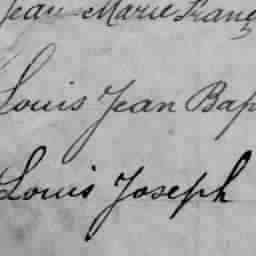 Jean Marie Franç
Louis Jean Bap
Louis Joseph